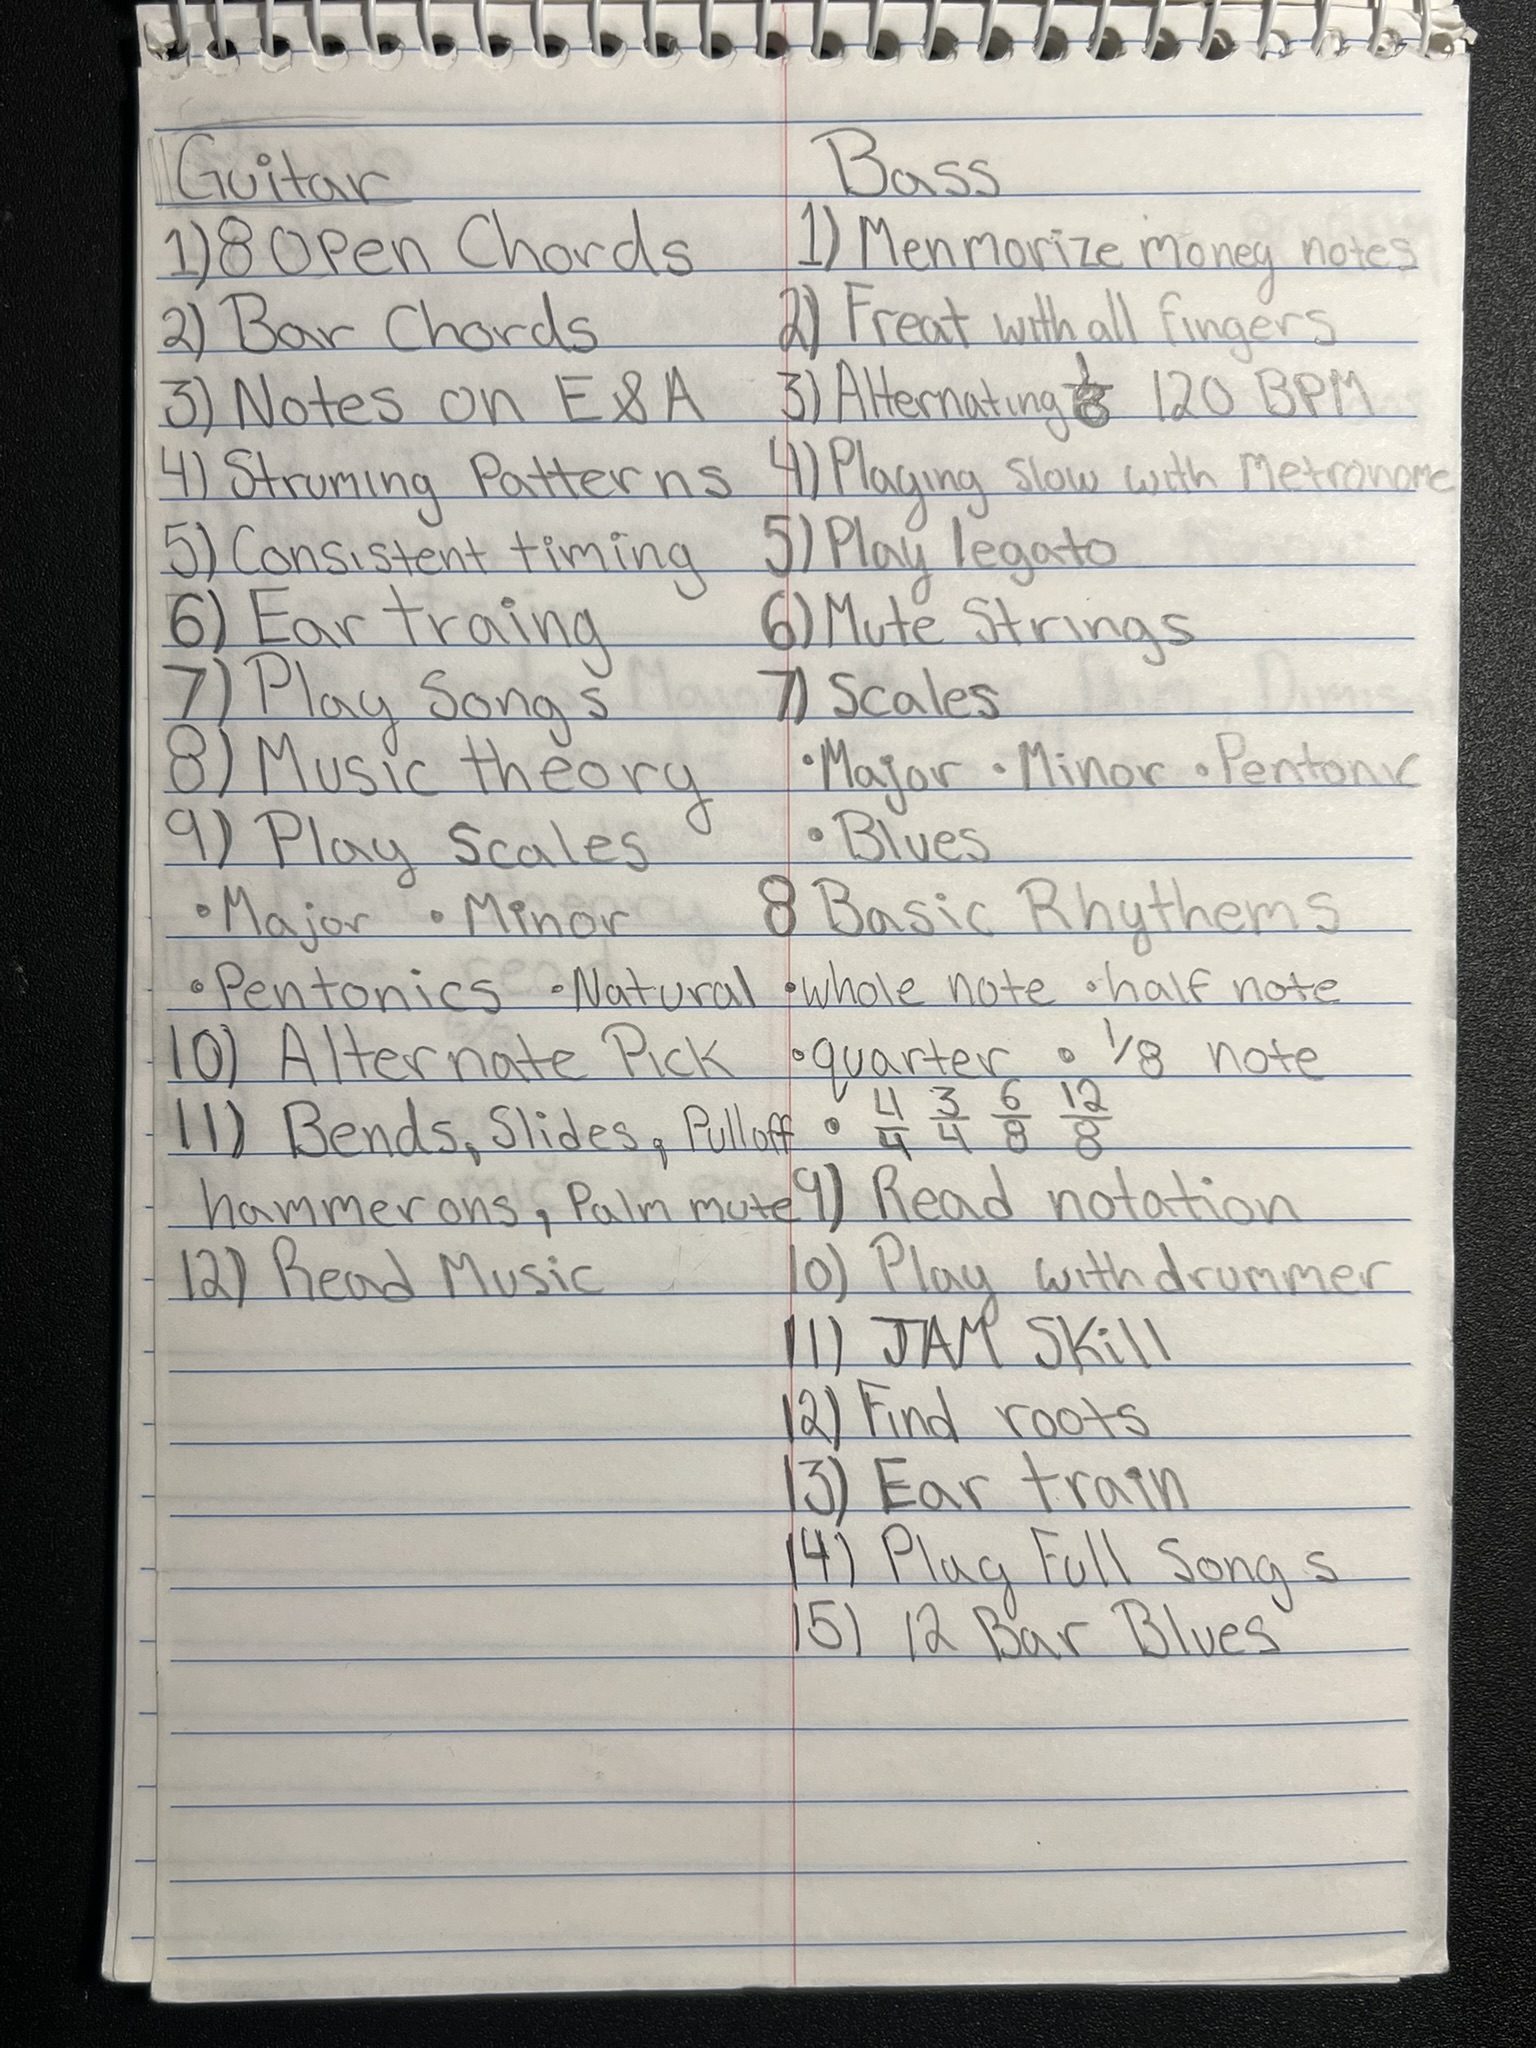 Guitar
1) 8 Open Chords
2) Bar Chords
3) Notes on E&A
4) Struming Patterns
5) Consistent timing
6) Ear traing
7) Play Songs
8) Music theory
9) Play Scales
•Major •Minor
•Pentonics •Natural
10) Alternate Pick
11) Bends, Slides, Pulloff
hammerons, Palm mute
12) Read Music
Bass
1) Menmorize money notes
2) Freat with all fingers
3) Alternating 1/8 120 BPM
4) Playing slow with Metronome
5) Play legato
6) Mute Strings
7) Scales
•Major •Minor •Pentonic
•Blues
8 Basic Rhythems
•whole note •half note
•quarter • 1/8 note
• 4/4 3/4 6/8 12/8
9) Read notation
10) Play with drummer
11) JAM Skill
12) Find roots
13) Ear train
14) Play Full Songs
15) 12 Bar Blues